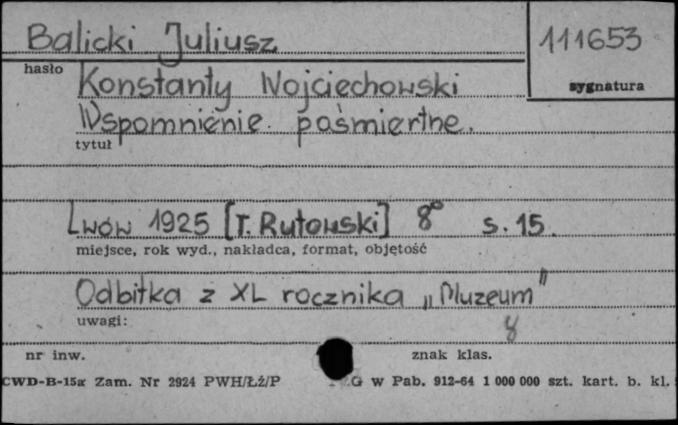 Balicki Juliusz
111653
hasło
sygnatura
Konstanty Wojciechowski
Wspomnienie pośmiertne.
tytuł
Lwów 1925 [T. Rutowski] 8° s. 15.
miejsce, rok wyd., nakładca, format, objętość
Odbitka z XL rocznika „Muzeum"
uwagi:
nr inw.
znak klas.
CWD-B-15a Zam. Nr 2924 PWH/Łż/P
G w Pab. 912-64 1 000 000 szt. kart. b. kl.